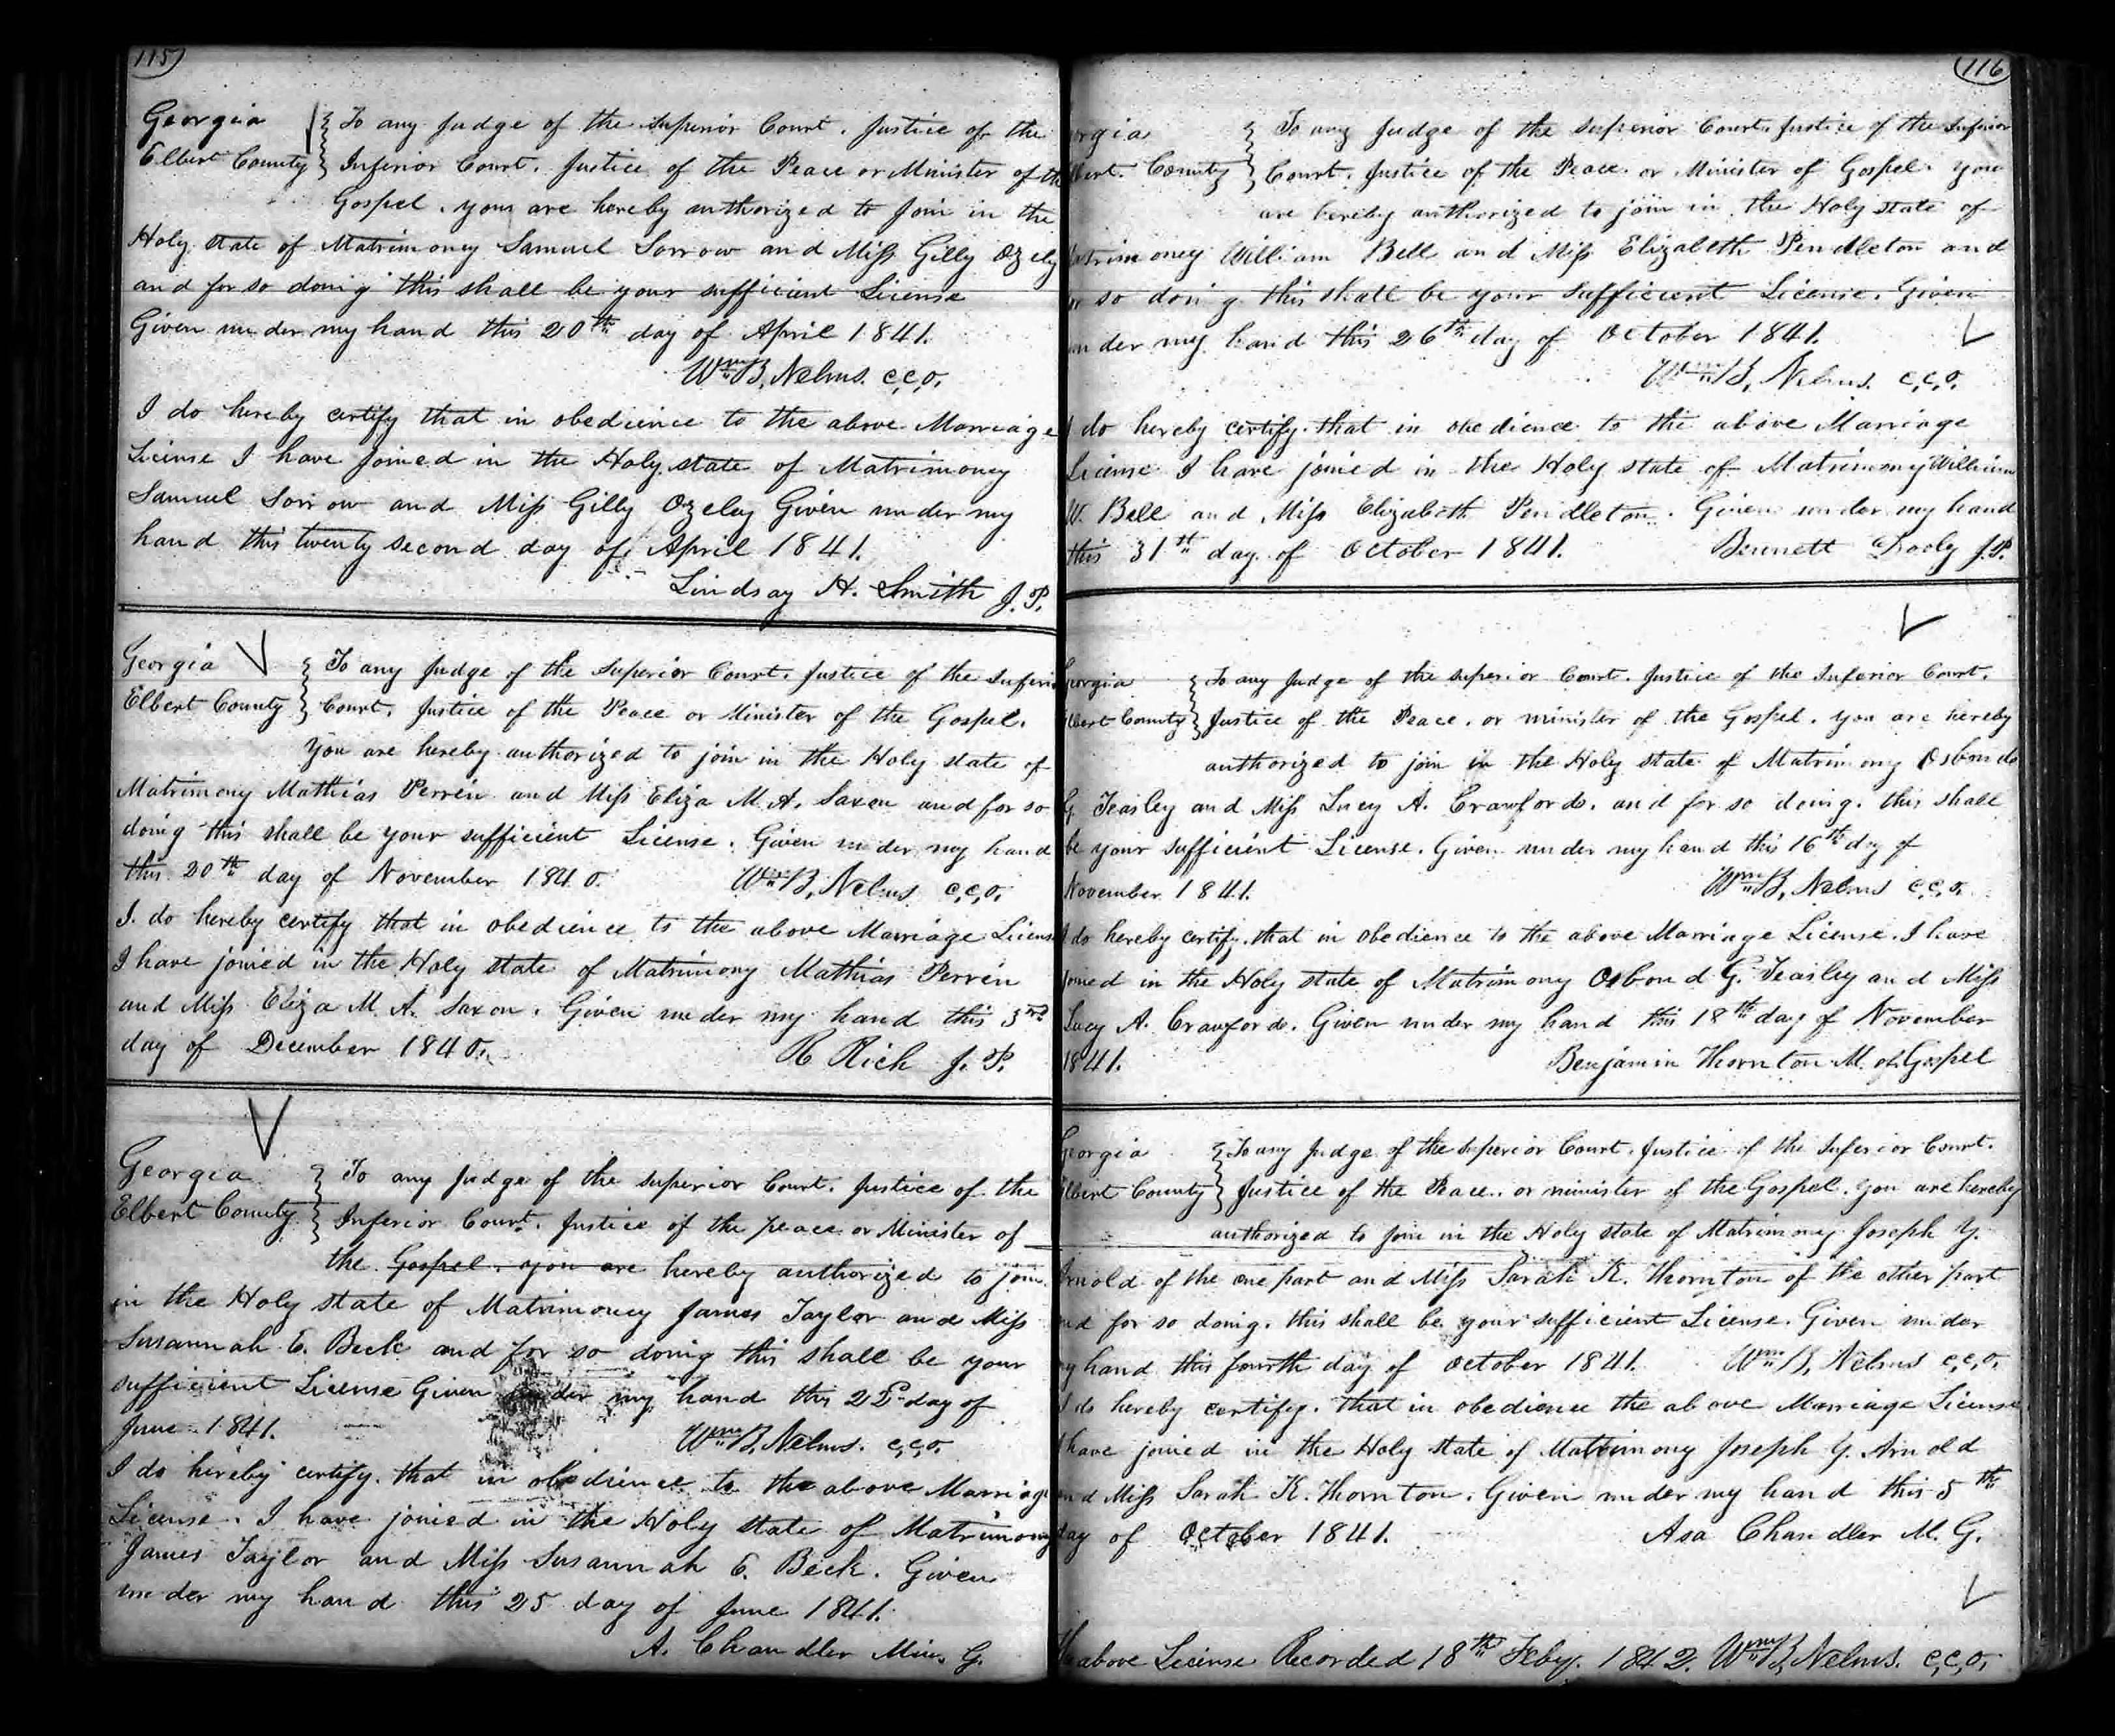 115
Georgia } To any Judge of the Superior Court. Justice of the
Elbert County } Inferior Court. Justice of the Peace or Minister of th
Gospel. you are hereby authorized to Join in the
Holy state of Matrimoney Samuel Sorrow and Miss Gilly Ozely
and for so doing this shall be your sufficient License
Given under my hand this 20th day of April 1841.
Wm B, Nelms. c,c,o,
I do hereby certify that in obedience to the above Marriage
License I have joined in the Holy state of Matrimoney
Samuel Sorrow and Miss Gilly Ozeley Given under my
hand this twenty second day of April 1841.
Lindsay H. Smith J.P.
Georgia } To any Judge of the Superior Court. Justice of the Inferi
Elbert County } Court. Justice of the Peace or Minister of the Gospel.
You are hereby authorized to join in the Holy state of
Matrimony Mathias Perrin and Miss Eliza M. A. Saxon and for so
doing this shall be your sufficient License. Given under my hand
this 20th day of November 1840. Wm B, Nelms c,c,o,
I. do hereby certify that in obedience to the above Marriage License
I have joined in the Holy state of Matrimony Mathias Perrin
and Miss Eliza M. A. Saxon. Given under my hand this 3rd
day of December 1840. R Rich J. P.
Georgia } To any Judge of the Superior Court. Justice of the
Elbert County } Inferior Court. Justice of the peace or Minister of
the Gospel. you are hereby authorized to join
in the Holy state of Matrimoney James Taylor and Miss
Susannah E. Beck and for so doing this shall be your
sufficient License Given under my hand this day of
June 1841. Wm B, Nelms. c,c,o,
I do hereby certify. that in obedience to the above Marriag
License. I have joined in the Holy state of Matrimony
James Taylor and Miss Susannah E. Beck. Given
under my hand this 25 day of June 1841.
A. Chandler Min. G.
116
orgia } To any Judge of the Superior Court. Justice of the Inferior
lbert County } Court. Justice of the Peace or Minister of Gospel. you
are hereby authorized to join in the Holy state of
atrimoney William Bell and Miss Elizabeth Pendleton and
or so doing this shall be your sufficient License. Given
under my hand this 26th day of October 1841.
Wm B, Nelms. c,c,o,
I do hereby certify that in obedience to the above Marriage
License I have joined in the Holy state of Matrimony William
W. Bell and Miss Elizabeth Pendleton. Given under my hand
this 31st day of October 1841. Bennett Dooly J.P.
Georgia } To any Judge of the superior Court. Justice of the Inferior Court.
lbert County } Justice of the Peace. or minister of the Gospel. you are hereby
authorized to join in the Holy state of Matrimony Osbond
G Teasley and Miss Lucy A. Crawford. and for so doing. this shall
be your sufficient License. Given under my hand this 16th day of
November 1841. Wm B, Nelms c,c,o,
I do hereby certify. that in obedience to the above Marriage License. I have
joined in the Holy state of Matrimony Osbond G. Teasley and Miss
Lucy A. Crawford. Given under my hand this 18th day of November
1841. Benjamin Thornton M. of Gospel
Georgia } To any Judge of the Superior Court. Justice of the Inferior Court.
lbert County } Justice of the Peace. or minister of the Gospel. you are hereby
authorized to join in the Holy state of Matrimony Joseph Y.
Arnold of the one part and Miss Sarah K. Thornton of the other part
and for so doing. this shall be your sufficient License. Given under
my hand this fourth day of October 1841. Wm B, Nelms c,c,o,
I do hereby certify. that in obedience the above Marriage License
I have joined in the Holy state of Matrimony Joseph Y. Arnold
and Miss Sarah K. Thornton. Given under my hand this 5th
day of October 1841. Asa Chandler M. G.
The above License Recorded 18th Feby. 1842. Wm B, Nelms. c,c,o,